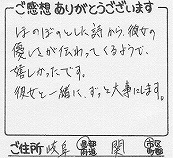 ご感想 ありがとうございます
ほのぼのとした詩から、彼女の
優しさが伝わってくるようで、
嬉しかったです。
彼女と一緒に、ずっと大事にします。
ご住所 岐阜 都道府県 関 市区町村